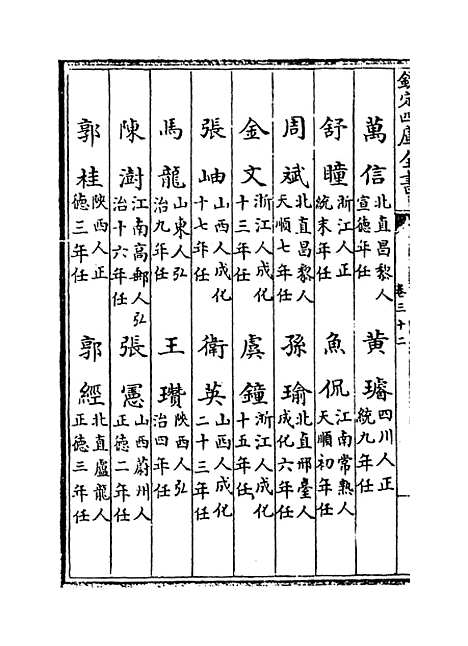 欽定四庫全書
卷三十二
萬信北直昌黎人宣德年任 黃璿四川人正統九年任
舒瞳浙江人正統末年任 魚侃江南常熟人天順初年任
周斌北直昌黎人天順七年任 孫瑜北直邢臺人成化六年任
金文浙江人成化十三年任 虞鐘浙江人成化十五年任
張岫山西人成化十七年任 衛英山西人成化二十三年任
馬龍山東人弘治九年任 王瓚陝西人弘治四年任
陳澍江南高郵人弘治十六年任 張憲山西蔚州人正德二年任
郭桂陝西人正德三年任 郭經北直盧龍人正德三年任